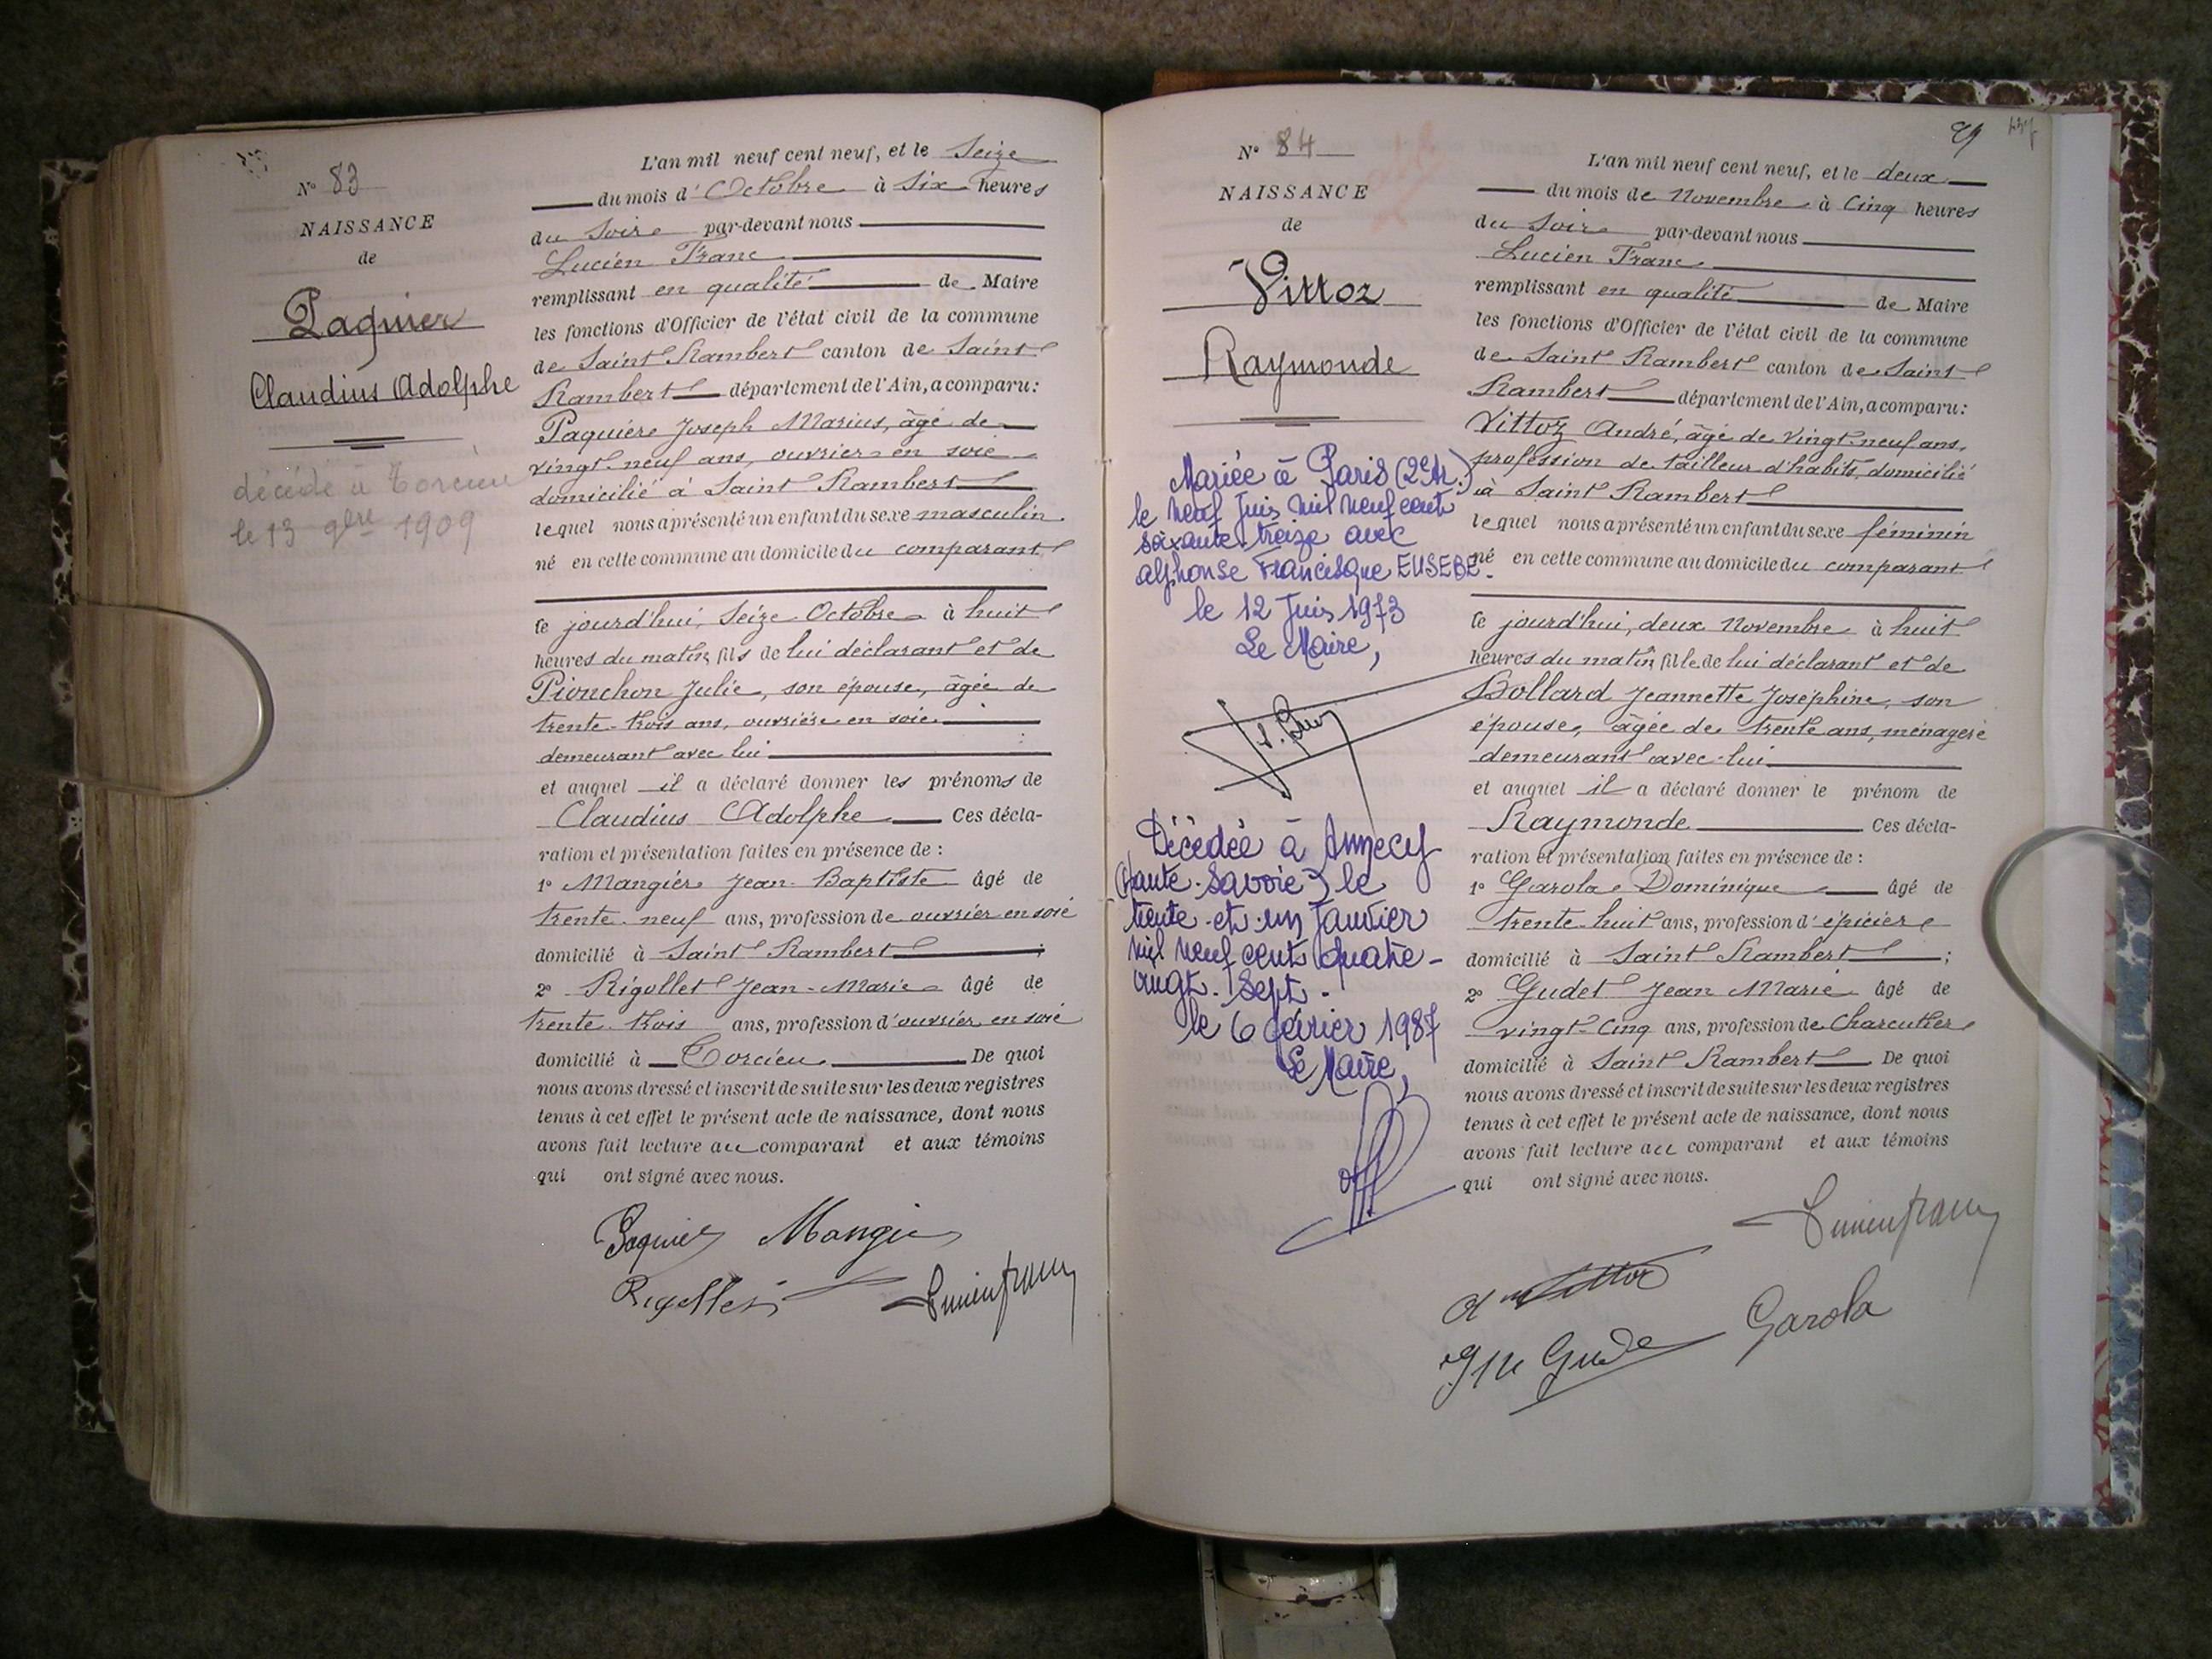 N° 83
NAISSANCE
de
Paquier
Claudius Adolphe
décédé à Torcieu
le 13 9bre 1909
L'an mil neuf cent neuf, et le Seize
du mois d'Octobre à Six heures
du Soir par-devant nous
Lucien Franc
remplissant en qualité de Maire
les fonctions d'Officier de l'état civil de la commune
de Saint Rambert canton de Saint
Rambert département de l'Ain, a comparu:
Paquier Joseph Marius, âgé de
vingt-neuf ans, ouvrier en soie
domicilié à Saint Rambert
lequel nous a présenté un enfant du sexe masculin
né en cette commune au domicile du comparant
ce jourd'hui, Seize Octobre à huit
heures du matin, fils de lui déclarant et de
Pionchon Julie, son épouse, âgée de
trente-trois ans, ouvrière en soie
demeurant avec lui
et auquel il a déclaré donner les prénoms de
Claudius Adolphe Ces décla-
ration et présentation faites en présence de :
1° Mangier Jean-Baptiste âgé de
trente-neuf ans, profession de ouvrier en soie
domicilié à Saint Rambert ;
2° Rigollet Jean-Marie âgé de
trente-trois ans, profession d'ouvrier en soie
domicilié à Torcieu De quoi
nous avons dressé et inscrit de suite sur les deux registres
tenus à cet effet le présent acte de naissance, dont nous
avons fait lecture au comparant et aux témoins
qui ont signé avec nous.
Paquier Mangier
Rigollet Lucien Franc
89
N° 84
NAISSANCE
de
Vittoz
Raymonde
Mariée à Paris (2e Ar.)
le neuf Juin mil neuf cent
soixante-treize avec
Alphonse Francisque EUSEBE.
le 12 Juin 1973
Le Maire,
Décédée à Annecy
(Haute-Savoie) le
trente-et-un Janvier
mil neuf cent quatre-
vingt-sept.
le 6 février 1987
Le Maire,
L'an mil neuf cent neuf, et le deux
du mois de Novembre à Cinq heures
du Soir par-devant nous
Lucien Franc
remplissant en qualité de Maire
les fonctions d'Officier de l'état civil de la commune
de Saint Rambert canton de Saint
Rambert département de l'Ain, a comparu:
Vittoz André, âgé de vingt-neuf ans,
profession de tailleur d'habits, domicilié
à Saint Rambert
lequel nous a présenté un enfant du sexe féminin
né en cette commune au domicile du comparant
ce jourd'hui, deux Novembre à huit
heures du matin, fille de lui déclarant et de
Bollard Jeannette Joséphine, son
épouse, âgée de trente ans, ménagère
demeurant avec lui
et auquel il a déclaré donner le prénom de
Raymonde Ces décla-
ration et présentation faites en présence de :
1° Garola Dominique âgé de
trente-huit ans, profession d'épicier
domicilié à Saint Rambert ;
2° Gudet Jean Marie âgé de
vingt-cinq ans, profession de Charcutier
domicilié à Saint Rambert De quoi
nous avons dressé et inscrit de suite sur les deux registres
tenus à cet effet le présent acte de naissance, dont nous
avons fait lecture au comparant et aux témoins
qui ont signé avec nous.
Lucien Franc
Vittoz
Garola